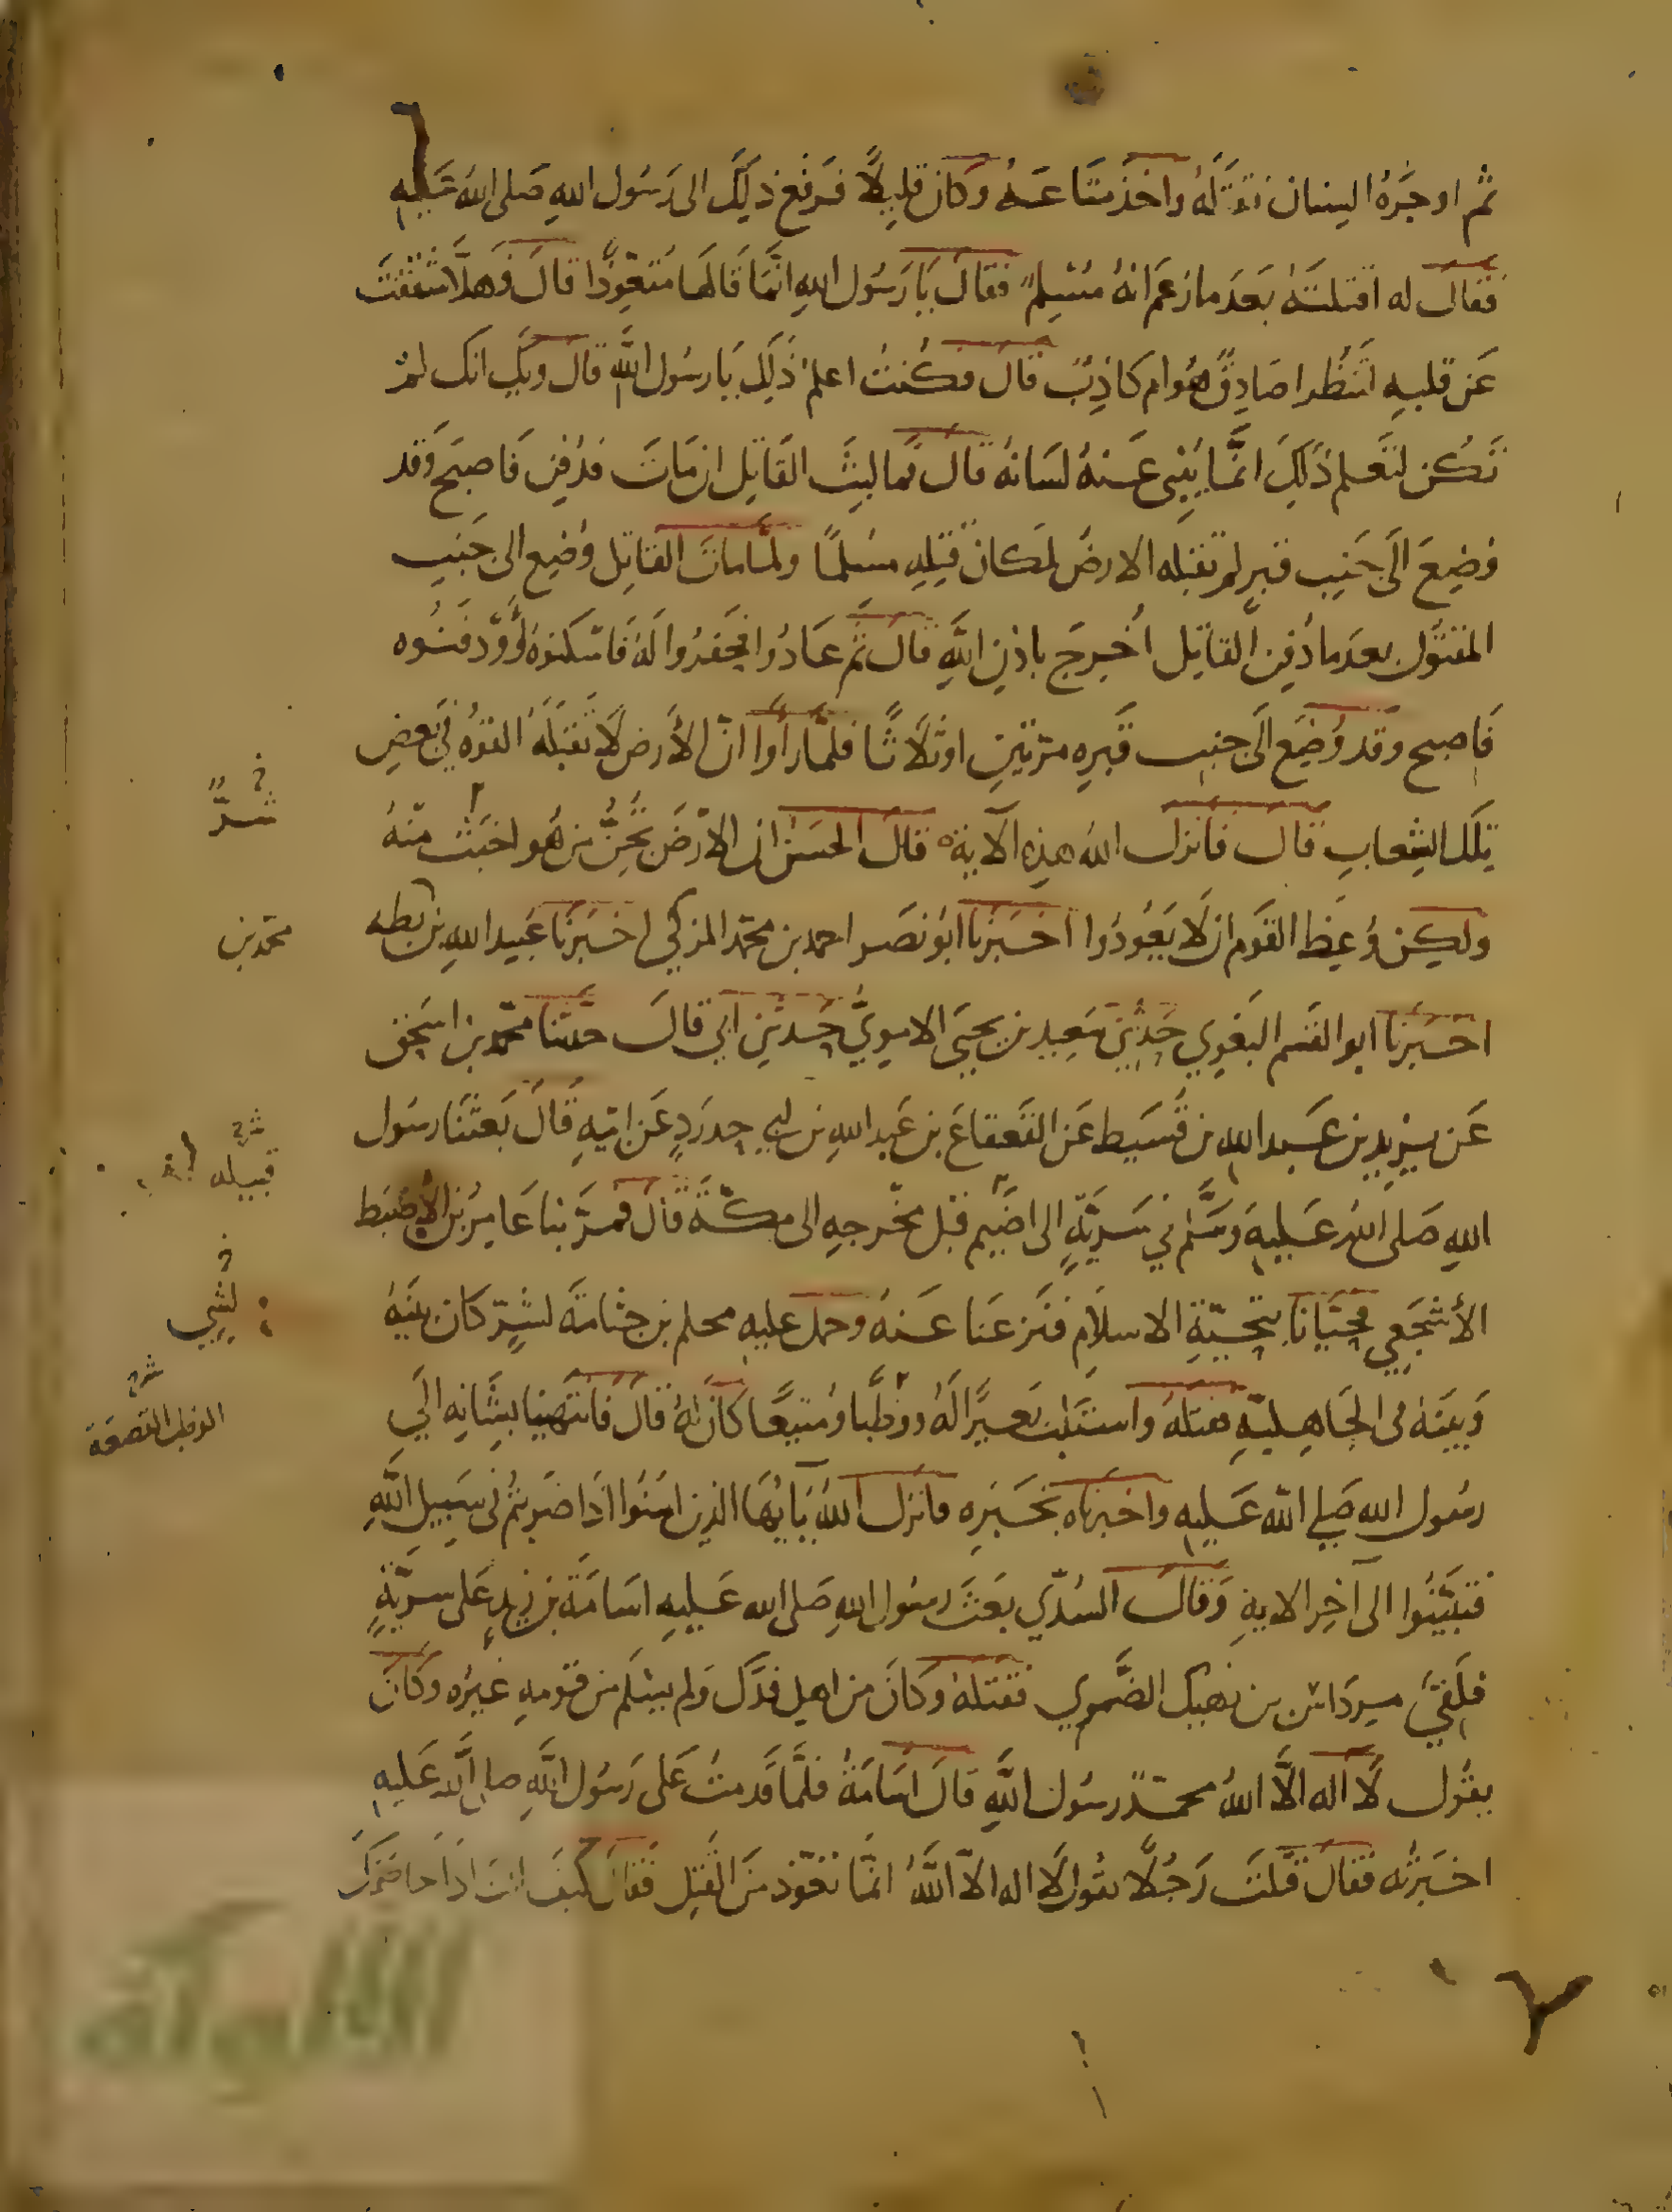 ثم اوجَرَهُ السِنان فقتَلَهُ واخذ متاعَهُ وكان قليلًا فرفع ذلك الى رَسُول اللهِ صَلى اللهُ عَلَيهِ
فقال له اقتلتَهُ بَعدَ ما زعَم انهُ مُسْلمٌ فقال يَا رَسُول اللهِ انَّما قالهَا مُتَعَوِّذًا قالَ فَهلَّا شَقَقتَ
عَن قلبهِ لتَنظُر اصَادِقٌ هُوَ ام كاذِبٌ قال وكُنتُ اعلمُ ذَلِكَ يَا رسُول اللَّه قال ويكَ انك لمْ
تَكُن لتَعلم ذلكَ انَّما يُبَيِّن عَنهُ لسَانهُ قال فما لبِثَ القَاتِل ان مَاتَ فدُفِنَ فَاصبَح وَقد
وُضِيعَ الَى جَنِب قبرِهِ لم تقبله الارضُ لمكان قتِلهِ مسُلمًا ولمَّا ماتَ القاتِل وُضِع الى جَنبِ
المقتُول بعدَ ما دُفِن القاتِل اُخرِجَ باذنِ اللَّهِ قال ثُم عَادُوا فحَفرُوا لَهُ فَاسْكنوْهُ وَدفَنُوه
فَاصبح وقد وُضِعَ الَى جنب قَبرِهِ مرّتين اوثلَاثًا فلمَّا رَأَوا انّ الأَرض لَا تقبَلَهُ القَوْهُ في بَعضِ
شَرٌّ
تِلكَ الشِعابِ قال فانزل اللهُ هذِهِ الآية قال الحسَن ان الارْضَ تُجِنُّ من هُو اخبَث منهُ
محمد بن
ولكِن وُعِظَ القَوم ان لَا يَعُودُوا اخبَرنا ابُو نَصَر احمد بن محمّد المزكي اخبَرنَا عبَيد اللهِ بن بَطه
اخبَرنا ابو القسم البغوِي حَدثِني سَعِيد بن يحيَى الامويّ حَدثنِي ابي قالَ حدَّثنا محمّد بن اسحَق
عَن يزِيد بن عَبد الله بن قُسَيط عَن القَعقاعَ بن عَبد اللهِ بن ابي حدرَدٍ عَن ابيهِ قَالَ بَعثَنَا رسُول
شرح
قبيله
اللهِ صَلى اللهُ عَليهِ وَسَلَّم في سَرِيّةٍ الى اضَمٍ قبل مخرجهِ الى مكّة قَال فمرَّ بنا عَامِرُ بن الأضبَط
الأشجَعي فحيَّانَا بتَحِيّةِ الاسلَامِ فنَزعنَا عَنهُ وحمل عليهِ محلم بن جثامَة لشرٍّ كان بَينَهُ
لشيٍ
وَبَينَهُ في الجَاهِليّةِ فقتلَهُ واستلَبَ بَعيرًا لَهُ ووَطبًا ومُتَيِّعًا كَانَ لَهُ قالَ فَانتَهينا بشَانِهِ الَي
شرح
الوطب القصعة
رسُول الله صَلي الله عَليهِ واخبرناه بخَبَرِه فانزل اللهُ يَا يُهَا الذين امَنُوا اذَا ضَربتُم في سَبِيلِ اللَّهِ
فتبَيَّنُوا الى آخِر الايةِ وَقال السُدّي بعَثَ رسُول اللهِ صَلى الله عَليهِ اسَامَة بن زيدٍ عَلى سرِيّةٍ
فلَقيَ مِردَاسَ بن نهيك الضَّمري فقتلهُ وكانَ من اهل فدَك وَلم يسْلم من قومهِ غيرُه وَكانَ
يقُول لَا اله الَّا اللهُ محمّدٌ رسُول اللَّهِ قالَ اسَامَةُ فلمَّا قَدمتُ عَلى رَسُول اللَّهِ صلى اللهُ عَليهِ
اخبَرتُه فقال قَتلتَ رَجُلًا يقُول لَا اله الاّ اللَّهُ انمَّا تعَوّذ منَ القَتِل فقَالَ كَيفَ انت اذَا خاصَمَك